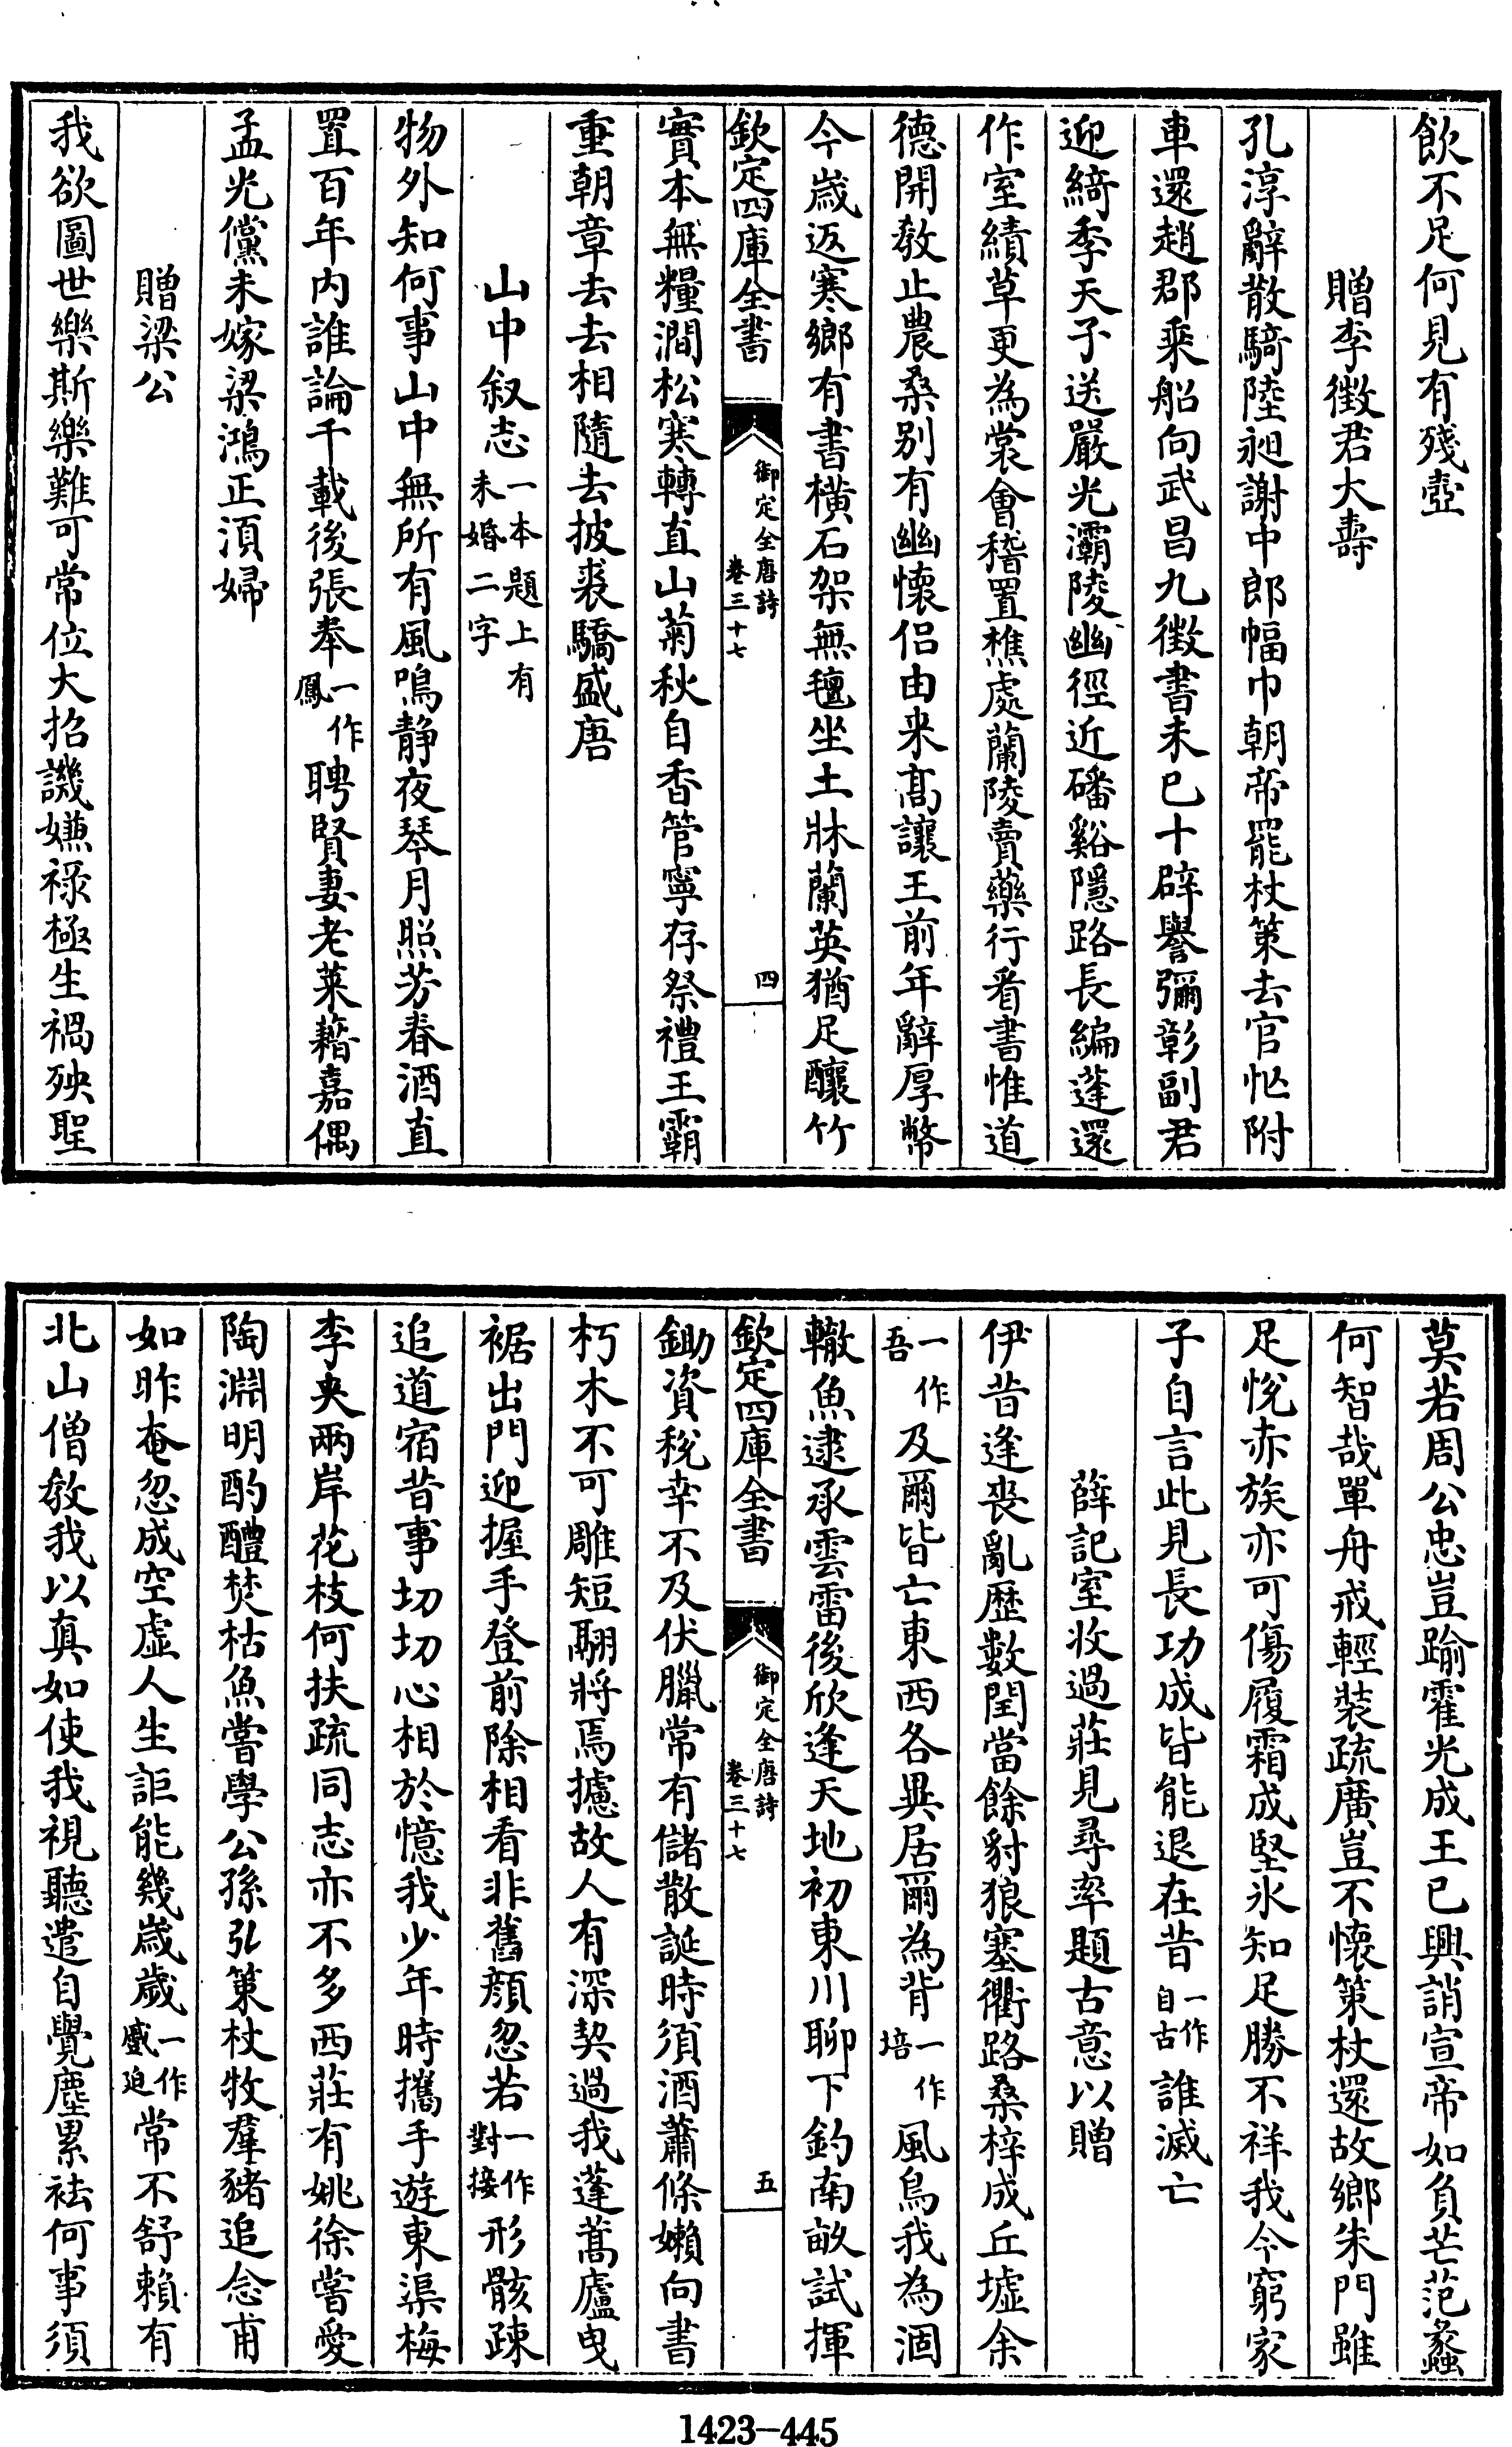 飲不足何見有殘壺
贈李徵君大壽
孔淳辭散騎陸昶謝中郎幅巾朝帝罷杖策去官忙附
車還趙郡乘船向武昌九徵書未已十辟譽彌彰副君
迎綺季天子送嚴光灞陵幽徑近磻谿隱路長編蓬還
作室績草更為裳會稽置樵處蘭陵賣藥行看書惟道
德開教止農桑别有幽懷侣由来髙讓王前年辭厚幣
今歲返寒鄉有書橫石架無氊坐土牀蘭英猶足釀竹
欽定四庫全書
御定全唐詩
卷三十七
四
實本無糧澗松寒轉直山菊秋自香管寧存祭禮王霸
重朝章去去相隨去披裘驕盛唐
山中叙志一本題上有未婚二字
物外知何事山中無所有風鳴静夜琴月照芳春酒直
置百年内誰論千載後張奉一作鳳聘賢妻老萊藉嘉偶
孟光儻未嫁梁鴻正須婦
贈梁公
我欲圖世樂斯樂難可常位大招譏嫌禄極生禍殃聖
莫若周公忠豈踰霍光成王已興誚宣帝如負芒范蠡
何智哉單舟戒輕裝疏廣豈不懷策杖還故鄉朱門雖
足悅赤族亦可傷履霜成堅氷知足勝不祥我今窮家
子自言此見長功成皆能退在昔一作自古誰滅亡
薛記室收過莊見尋率題古意以贈
伊昔逢喪亂歴數閏當餘豺狼塞衢路桑梓成丘墟余
一作吾及爾皆亡東西各異居爾為背一作培風鳥我為涸
轍魚逮承雲雷後欣逢天地初東川聊下釣南畝試揮
欽定四庫全書
御定全唐詩
卷三十七
五
鋤資稅幸不及伏臘常有儲散誕時須酒蕭條嬾向書
朽木不可雕短翮將焉攄故人有深契過我蓬蒿廬曳
裾出門迎握手登前除相看非舊顔忽若一作對接形骸疎
追道宿昔事切切心相於憶我少年時攜手遊東渠梅
李夾兩岸花枝何扶疏同志亦不多西莊有姚徐嘗愛
陶淵明酌醴焚枯魚嘗學公孫弘策杖牧羣豬追念甫
如昨奄忽成空虛人生詎能幾歲歲一作蹙迫常不舒賴有
北山僧教我以真如使我視聽遣自覺塵累袪何事須
1423-445